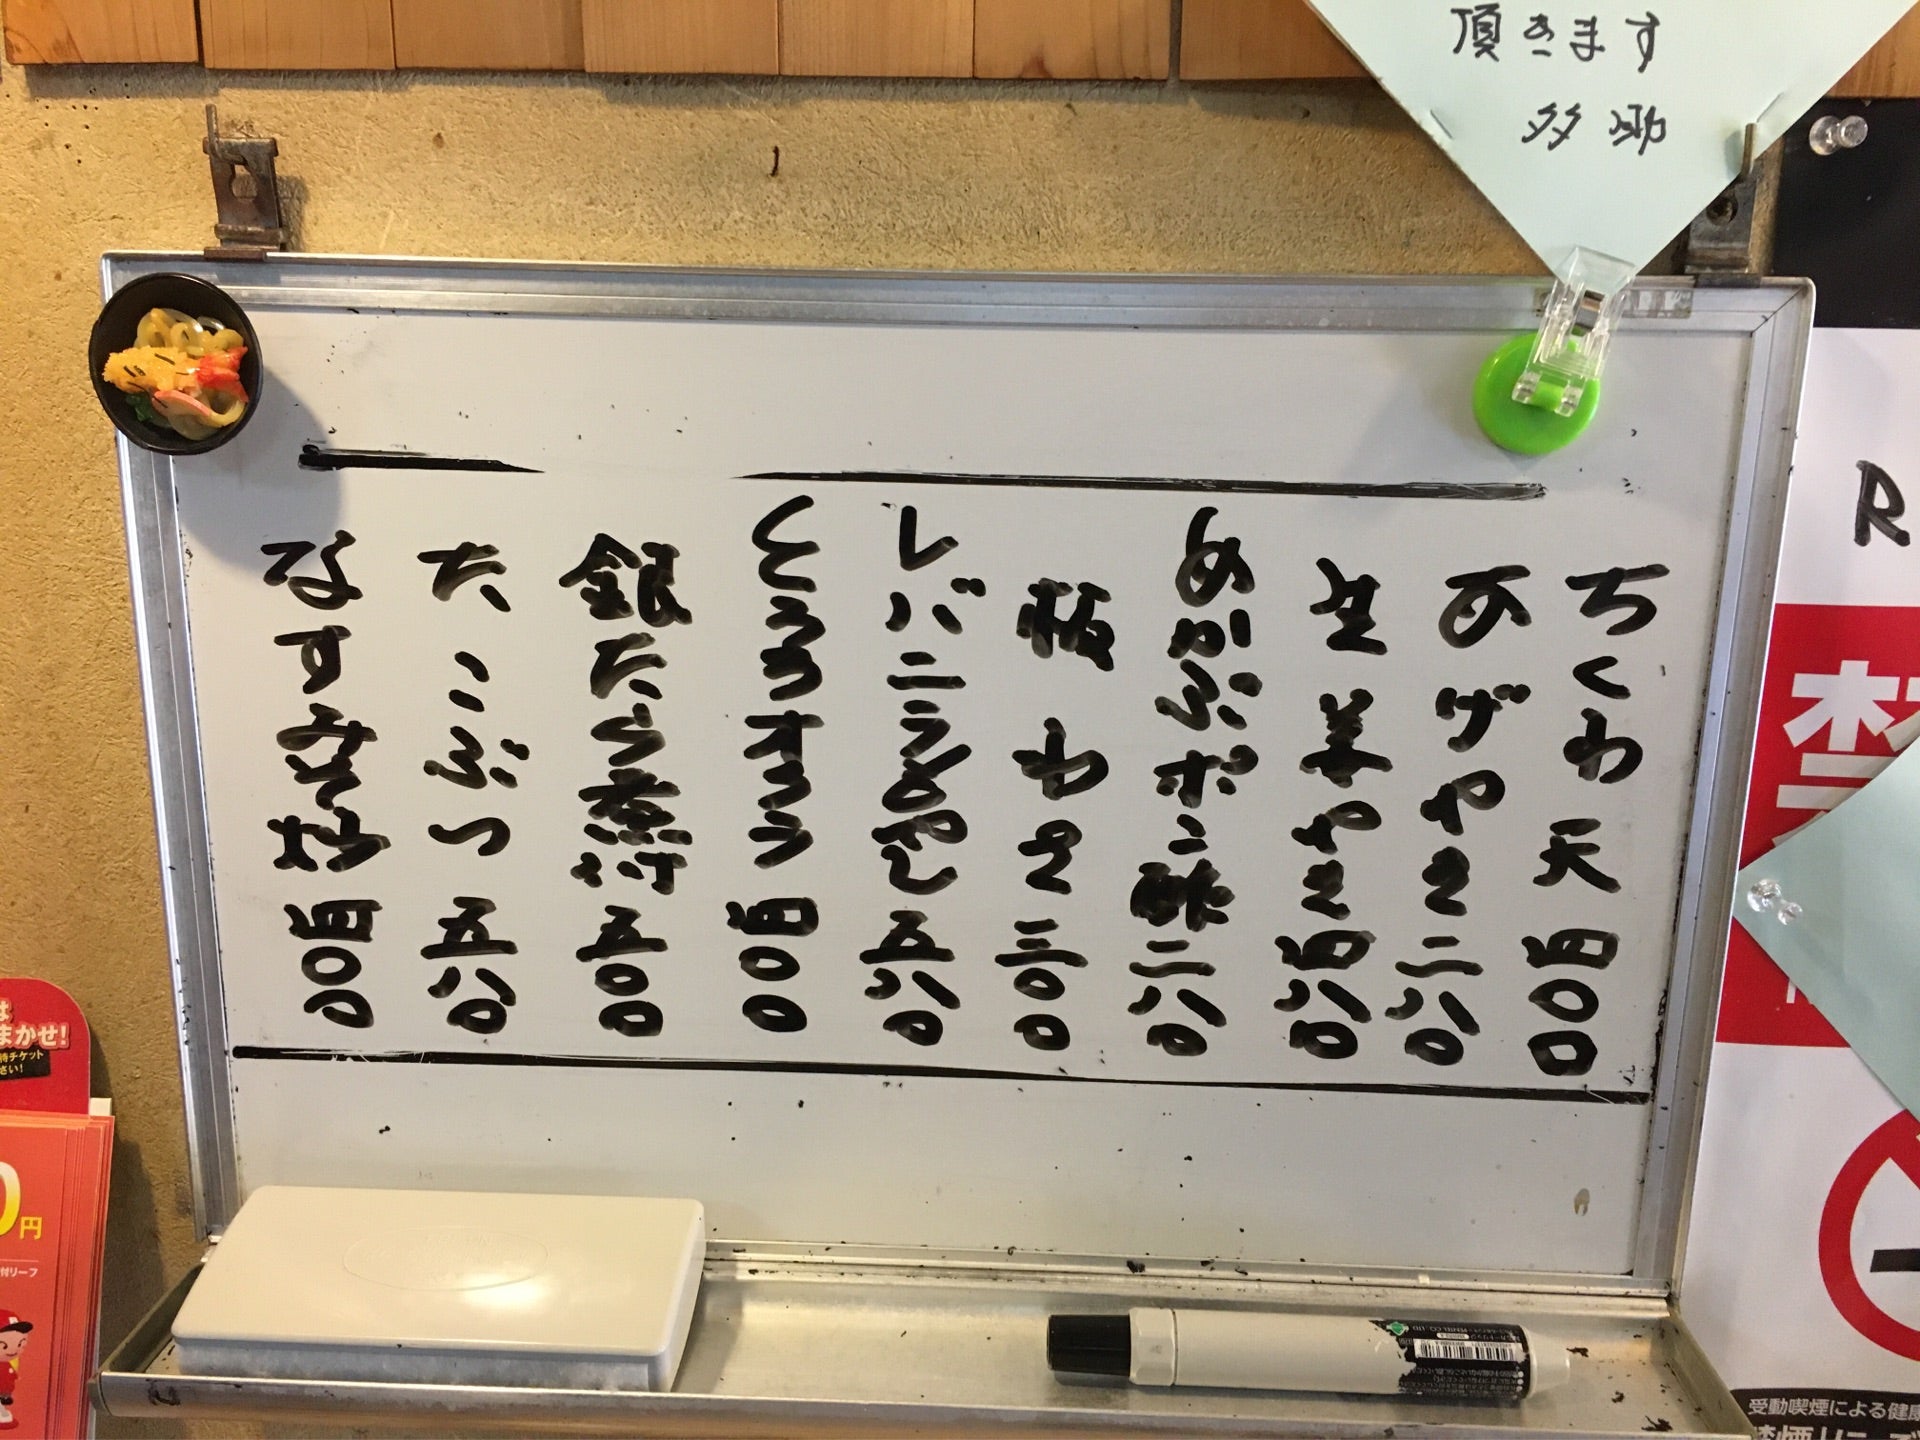 頂きます
多助
ちくわ天 四〇〇
あげやき 二八〇
生姜やき 四八〇
めかぶポン酢 二八〇
板わさ 三〇〇
レバニラもやし 五八〇
とろろオクラ 四〇〇
銀だら煮付 五〇〇
大こぶつ 五八〇
なすみそ炒 四〇〇
R
禁
まかせ!
待チケット
さい!
0円
付リーフ
受動喫煙による健康